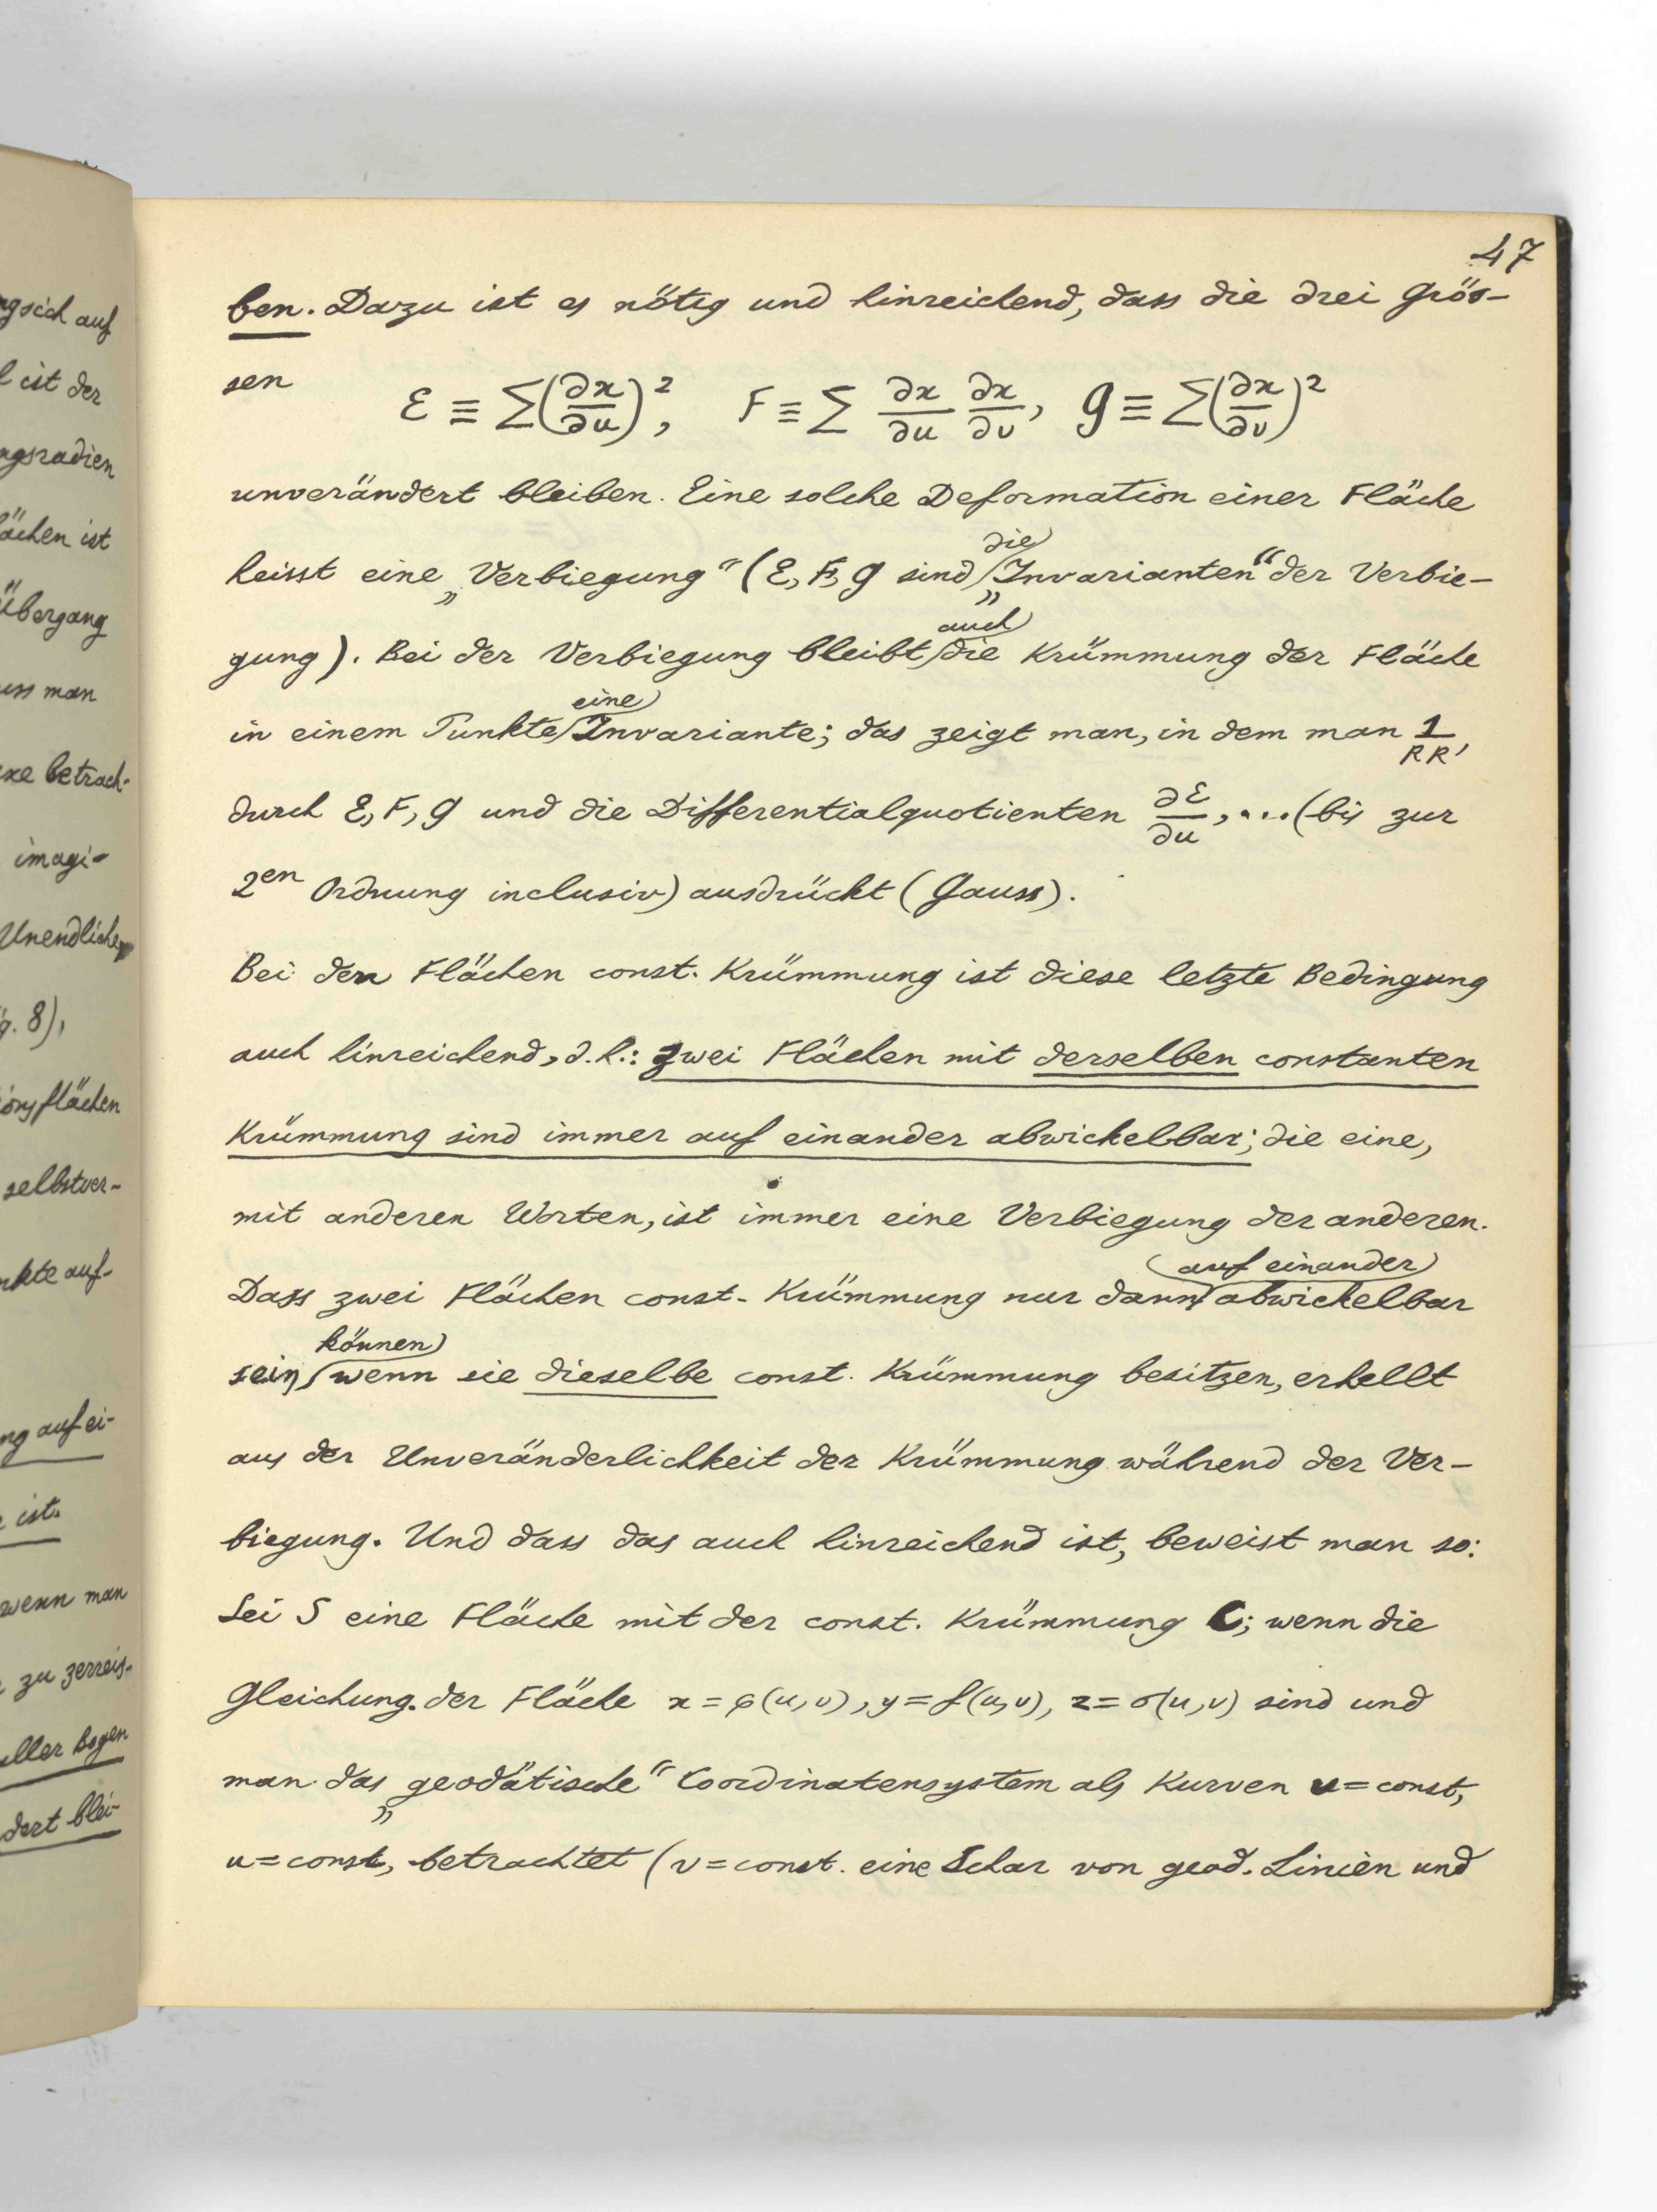 ngsich auf
l ist der
ngsradien
lächen ist
Übergang
uss man
xe betrach-
imagi-
Unendliche
g. 8),
örsflächen
selbstver-
nkte auf-
ng auf ei-
e ist.
wenn man
zu zerreis-
aller Bogen
dert blei-
47
ben. Dazu ist es nötig und hinreichend, dass die drei Grös-
sen
E ≡ ∑(∂x/∂u)², F ≡ ∑ ∂x/∂u ∂x/∂v, G ≡ ∑(∂x/∂v)²
unverändert bleiben. Eine solche Deformation einer Fläche
heisst eine „Verbiegung“ (E, F, G sind die „Invarianten“ der Verbie-
gung). Bei der Verbiegung bleibt auch die Krümmung der Fläche
in einem Punkte eine Invariante; das zeigt man, in dem man 1/RR'
durch E, F, G und die Differentialquotienten ∂E/∂u, ... (bis zur
2en Ordnung inclusiv) ausdrückt (Gauss).
Bei den Flächen const. Krümmung ist diese letzte Bedingung
auch hinreichend, d.h.: zwei Flächen mit derselben constanten
Krümmung sind immer auf einander abwickelbar; die eine,
mit anderen Worten, ist immer eine Verbiegung der anderen.
Dass zwei Flächen const. Krümmung nur dann auf einander abwickelbar
sein können, wenn sie dieselbe const. Krümmung besitzen, erhellt
aus der Unveränderlichkeit der Krümmung während der Ver-
biegung. Und dass das auch hinreichend ist, beweist man so:
Sei S eine Fläche mit der const. Krümmung C; wenn die
Gleichung. der Fläche x = φ(u,v), y = f(u,v), z = σ(u,v) sind und
man das „geodätische“ Coordinatensystem als Kurven v = const,
u = const, betrachtet (v = const. eine Schar von geod. Linien und